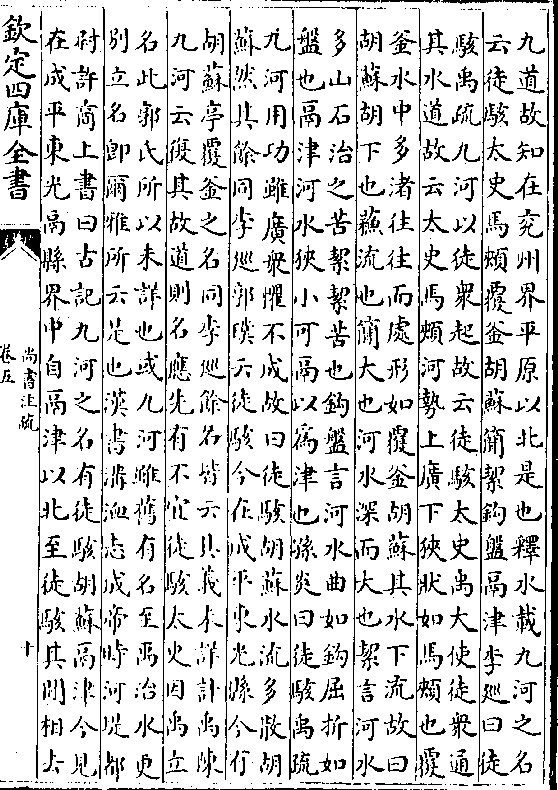 九道故知在兖州界平原以北是也釋水載九河之名
云徒駭太史馬頰覆釜胡蘇簡絜鉤盤鬲津李廵曰徒
駭禹疏九河以徒衆起故云徒駭太史禹大使徒衆通
其水道故云太史馬頰河勢上廣下狹狀如馬頰也覆
釜水中多渚往往而處形如覆釜胡蘇其水下流故曰
胡蘇胡下也蘇流也簡大也河水深而大也絜言河水
多山石治之苦絜絜苦也鉤盤言河水曲如鉤屈折如
盤也鬲津河水狹小可鬲以爲津也孫炎曰徒駭禹疏
九河用功雖廣衆懼不成故曰徒駭胡蘇水流多散胡
蘇然其餘同李廵郭璞云徒駭今在成平東光縣今有
胡蘇亭覆釜之名同李廵餘名皆云其義未詳計禹陳
九河云復其故道則名應先有不宜徒駭太史因禹立
名此郭氏所以未詳也或九河雖舊有名至禹治水更
别立名即爾雅所云是也漢書溝洫志成帝時河堤都
尉許商上書曰古記九河之名有徒駭胡蘇鬲津今見
在成平東光鬲縣界中自鬲津以北至徒駭其間相去
欽定四庫全書
尚書注疏
卷五
十